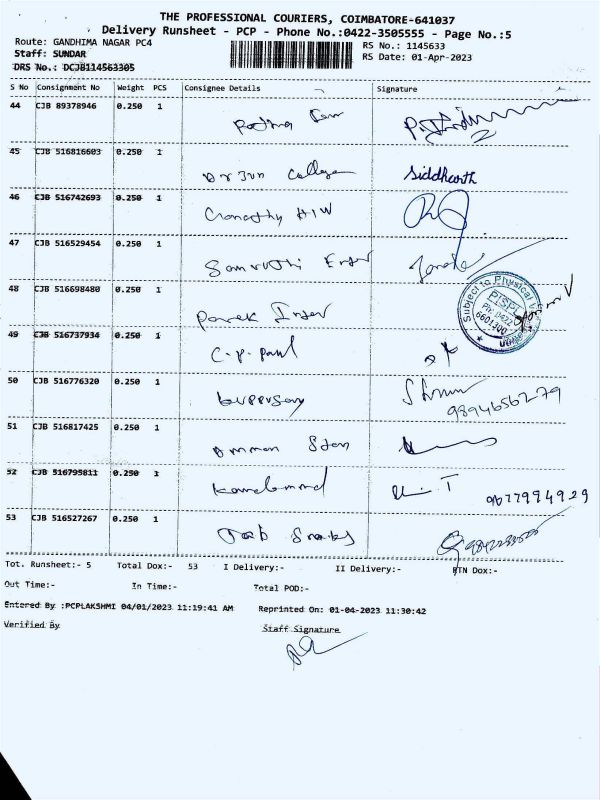 THE PROFESSIONAL COURIERS, COIMBATORE-641037
Delivery Runsheet - PCP - Phone No.:0422-3505555 - Page No.:5
Route: GANDHIMA NAGAR PC4 RS No.: 1145633
Staff: SUNDAR RS Date: 01-Apr-2023
DRS No.: DCJB114563305
S No Consignment No Weight PCS Consignee Details Signature
44 CJB 89378946 0.250 1
45 CJB 516816603 0.250 1 College Siddharth
46 CJB 516742693 0.250 1
47 CJB 516529454 0.250 1
48 CJB 516698480 0.250 1
Subject to Physical
PISPL
Ph: 0422
49 CJB 516737934 0.250 1 C.P. Paul
50 CJB 516776320 0.250 1
9894656279
51 CJB 516817425 0.250 1 Amman
52 CJB 516795811 0.250 1
9677994929
53 CJB 516527267 0.250 1
Tot. Runsheet:- 5 Total Dox:- 53 I Delivery:- II Delivery:- RTN Dox:-
Out Time:- In Time:- Total POD:-
Entered By :PCPLAKSHMI 04/01/2023 11:19:41 AM Reprinted On: 01-04-2023 11:30:42
Verified By Staff Signature